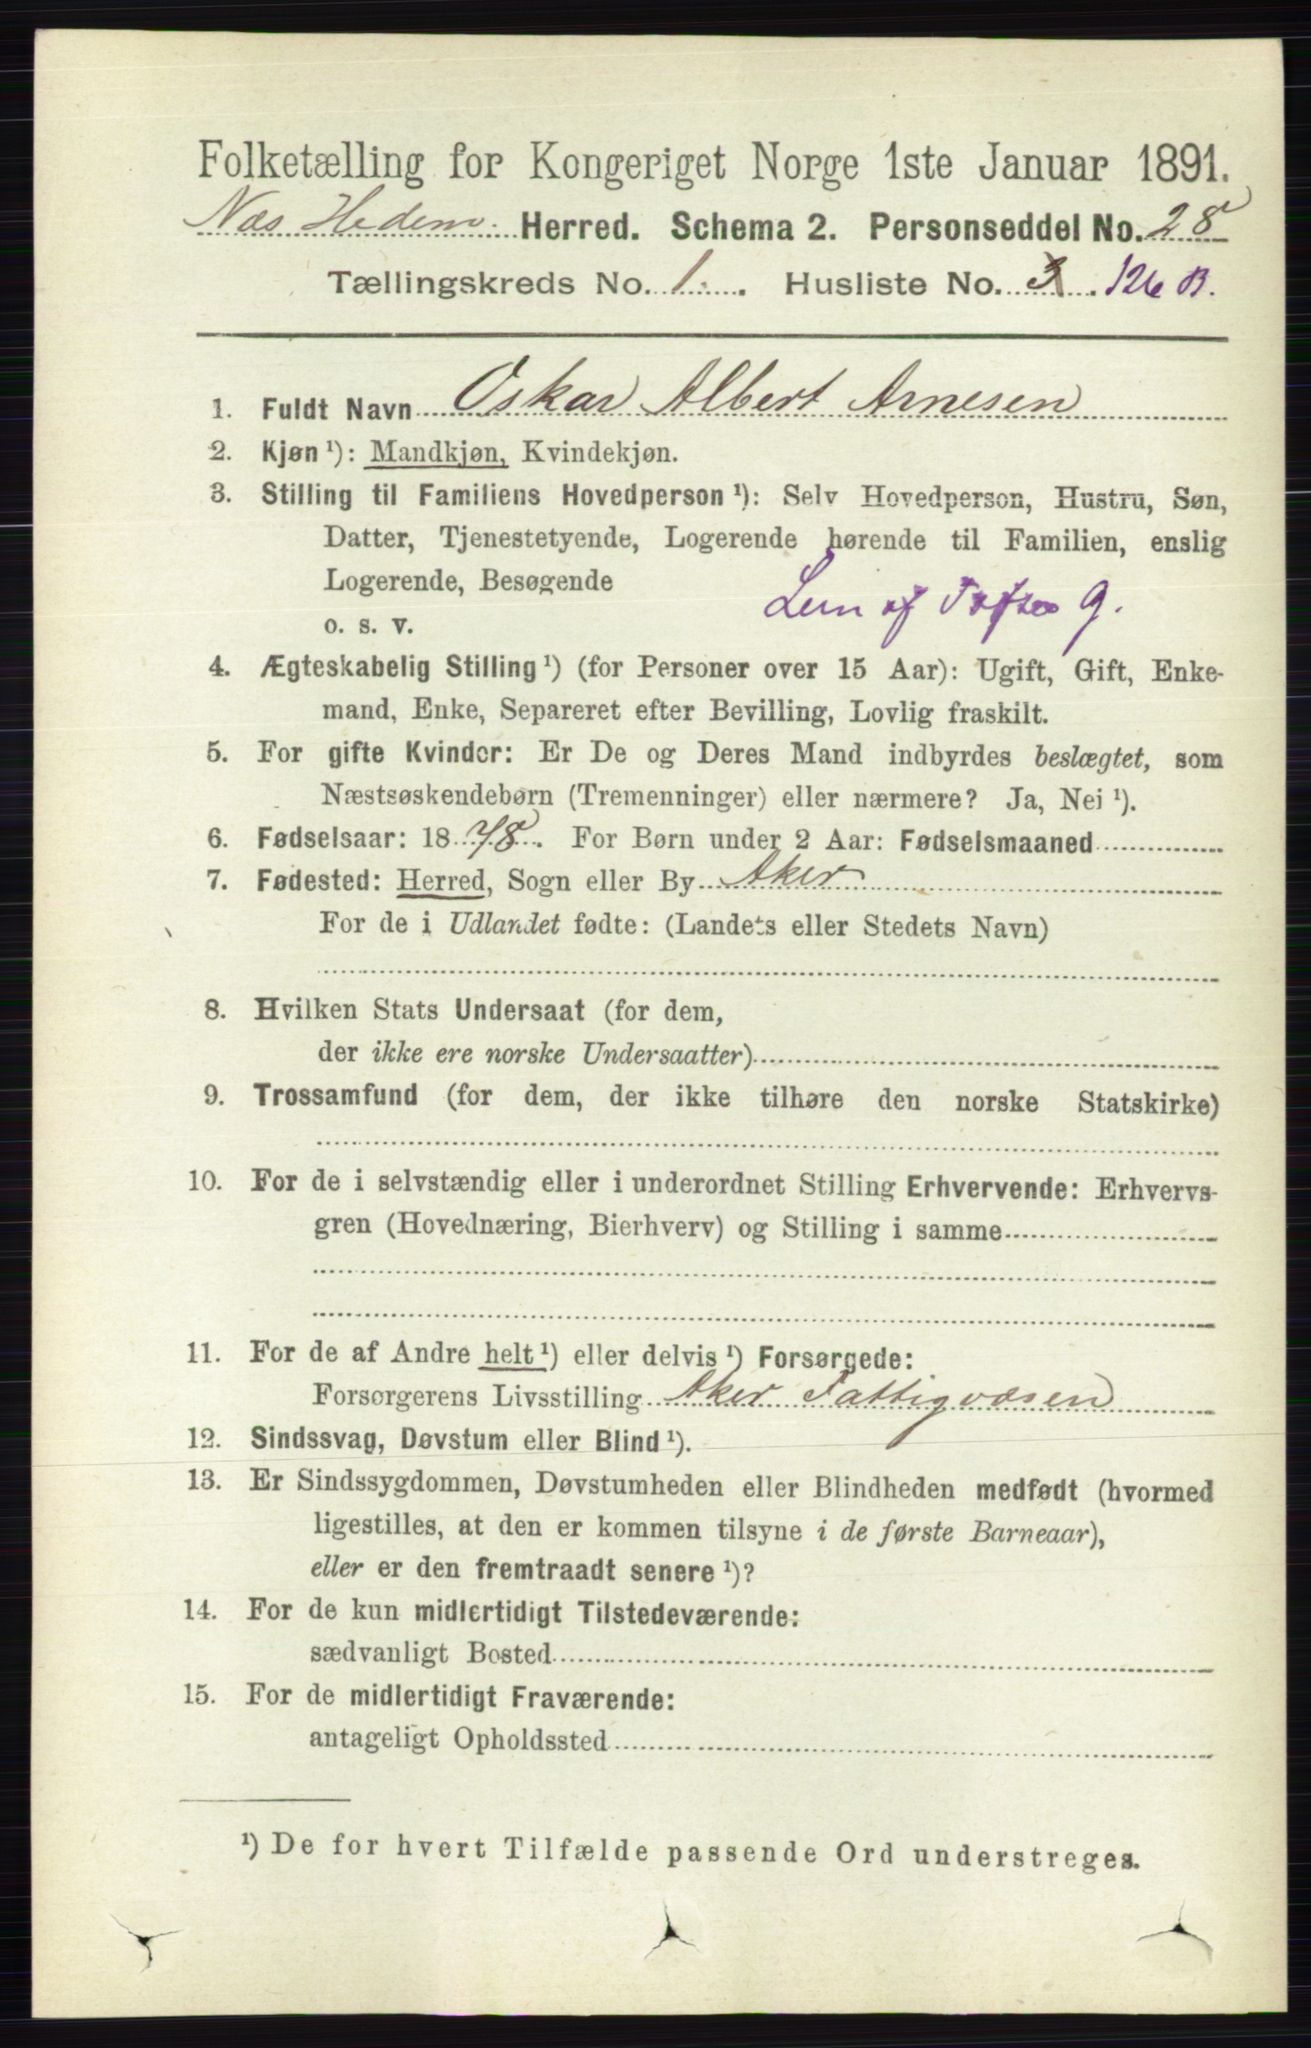 Folketælling for Kongeriget Norge 1ste Januar 1891.
Næs Hedem. Herred. Schema 2. Personseddel No. 28
Tællingskreds No. 1. Husliste No. 3. 126 B.
1. Fuldt Navn Oskar Albert Arnesen
2. Kjøn ¹): Mandkjøn, Kvindekjøn.
3. Stilling til Familiens Hovedperson ¹): Selv Hovedperson, Hustru, Søn,
Datter, Tjenestetyende, Logerende hørende til Familien, enslig
Logerende, Besøgende
o. s. v.
Lem af
4. Ægteskabelig Stilling ¹) (for Personer over 15 Aar): Ugift, Gift, Enke-
mand, Enke, Separeret efter Bevilling, Lovlig fraskilt.
5. For gifte Kvinder: Er De og Deres Mand indbyrdes beslægtet, som
Næstsøskendebørn (Tremenninger) eller nærmere? Ja, Nei ¹).
6. Fødselsaar: 1878. For Børn under 2 Aar: Fødselsmaaned
7. Fødested: Herred, Sogn eller By Aker
For de i Udlandet fødte: (Landets eller Stedets Navn)
8. Hvilken Stats Undersaat (for dem,
der ikke ere norske Undersaatter)
9. Trossamfund (for dem, der ikke tilhøre den norske Statskirke)
10. For de i selvstændig eller i underordnet Stilling Erhvervende: Erhvervs-
gren (Hovednæring, Bierhverv) og Stilling i samme
11. For de af Andre helt ¹) eller delvis ¹) Forsørgede:
Forsørgerens Livsstilling Aker Fattigvæsen
12. Sindssvag, Døvstum eller Blind ¹).
13. Er Sindssygdommen, Døvstumheden eller Blindheden medfødt (hvormed
ligestilles, at den er kommen tilsyne i de første Barneaar),
eller er den fremtraadt senere ¹)?
14. For de kun midlertidigt Tilstedeværende:
sædvanligt Bosted
15. For de midlertidigt Fraværende:
antageligt Opholdssted
¹) De for hvert Tilfælde passende Ord understreges.